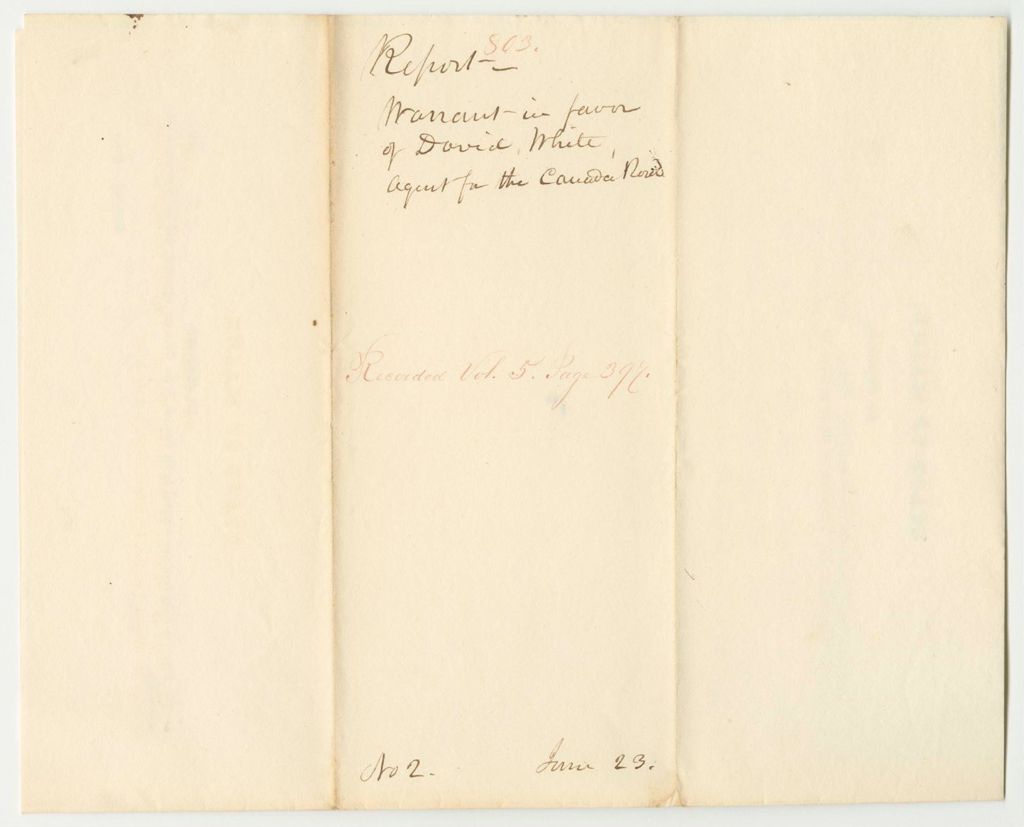 803.
Report-
Warrant in favor
of David White,
Agent for the Canada Road
Recorded Vol. 5. Page 397.
No 2. June 23.